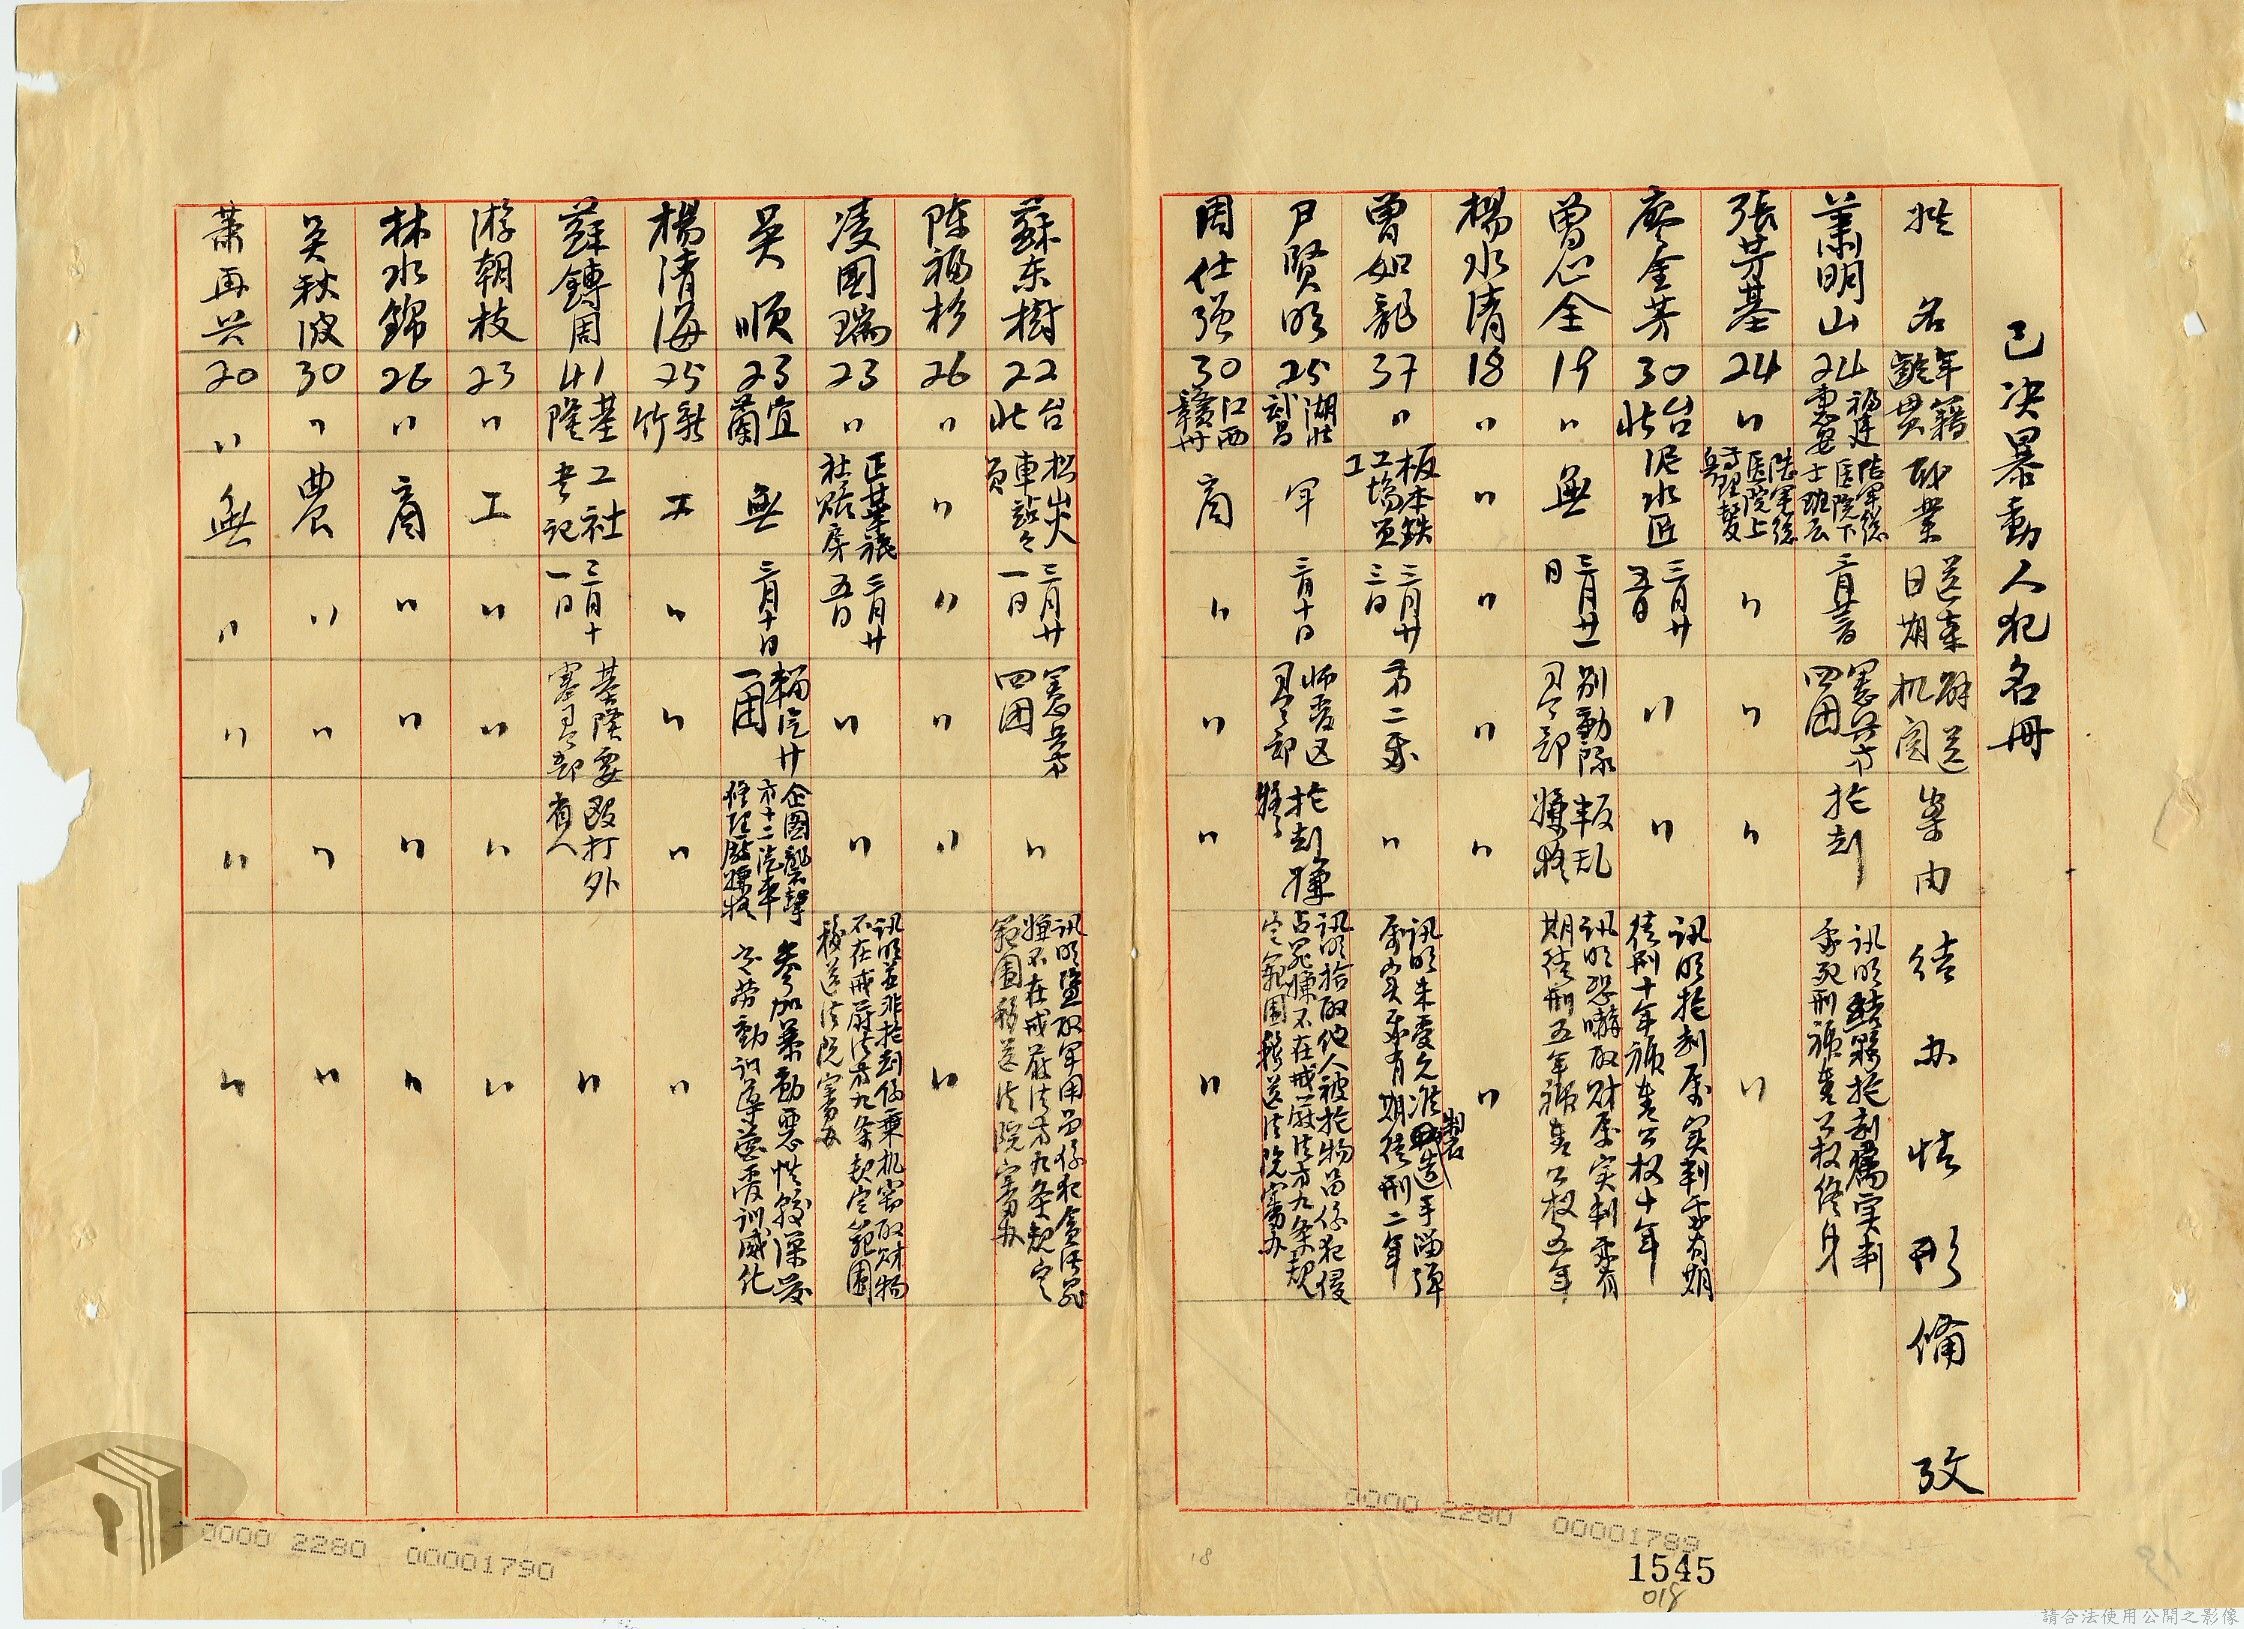 已决暴動人犯名冊
姓名 年齡 籍貫 職業 送案日期 解送机関 案由 結办情形 備攷
蕭明山 24 福建惠安 陸軍總医院下士班長 三月廿一日 憲兵第四团 搶刼 訊明結夥搶刼屬实判處死刑褫奪公权終身
張芳基 24 〃 陸軍總医院上等看護兵 〃 〃 〃 〃
廖金芳 30 台北 泥水匠 三月廿五日 〃 〃 訊明搶刼屬实判處有期徒刑十年褫奪公权十年
曾心全 19 〃 無 三月廿一日 別動隊司令部 叛乱嫌疑 訊明恐嚇取财屬实判處有期徒刑五年褫奪公权五年
楊水清 18 〃 〃 〃 〃 〃 〃
曾如龍 37 〃 板本鉄工場員工 三月廿三日 第二處 〃 訊明未受允准製造手溜彈屬实處有期徒刑二年
尹賢明 25 湖北武昌 軍 三月十日 师管区司令部 搶刼嫌疑 訊明拾取他人被搶物品係犯侵占罪嫌不在戒嚴法第九条規定範圍移送法院審办
周仕强 30 江西贛州 商 〃 〃 〃 〃
蘇东樹 22 台北 松山火車站員 三月廿一日 憲兵第四团 〃 訊明盜取军用品係犯貪污罪嫌不在戒嚴法第九条規定範圍移送法院審办
陈福杉 26 〃 〃 〃 〃 〃 〃
凌國瑞 23 〃 正華報社賬房 三月廿五日 〃 〃 訊明並非搶刼係乘机窃取财物不在戒嚴法第九条規定範圍移送法院審办
吳順 23 宜蘭 無 三月十日 輜汽廿一团 企圖襲擊第十二汽車修理廠嫌疑 參加暴動惡性較深發交劳動訓導营受訓感化
楊清海 25 新竹 工 〃 〃 〃 〃
蘇鏄周 41 基隆 工社書記 三月十一日 基隆要塞司令部 毆打外省人 〃
游朝枝 23 〃 工 〃 〃 〃 〃
林水錦 26 〃 商 〃 〃 〃 〃
吳秋波 30 〃 農 〃 〃 〃 〃
蕭再兴 20 〃 無 〃 〃 〃 〃
0000 2280 00001789
0000 2280 00001790
1545
018
18
19
請合法使用公開之影像